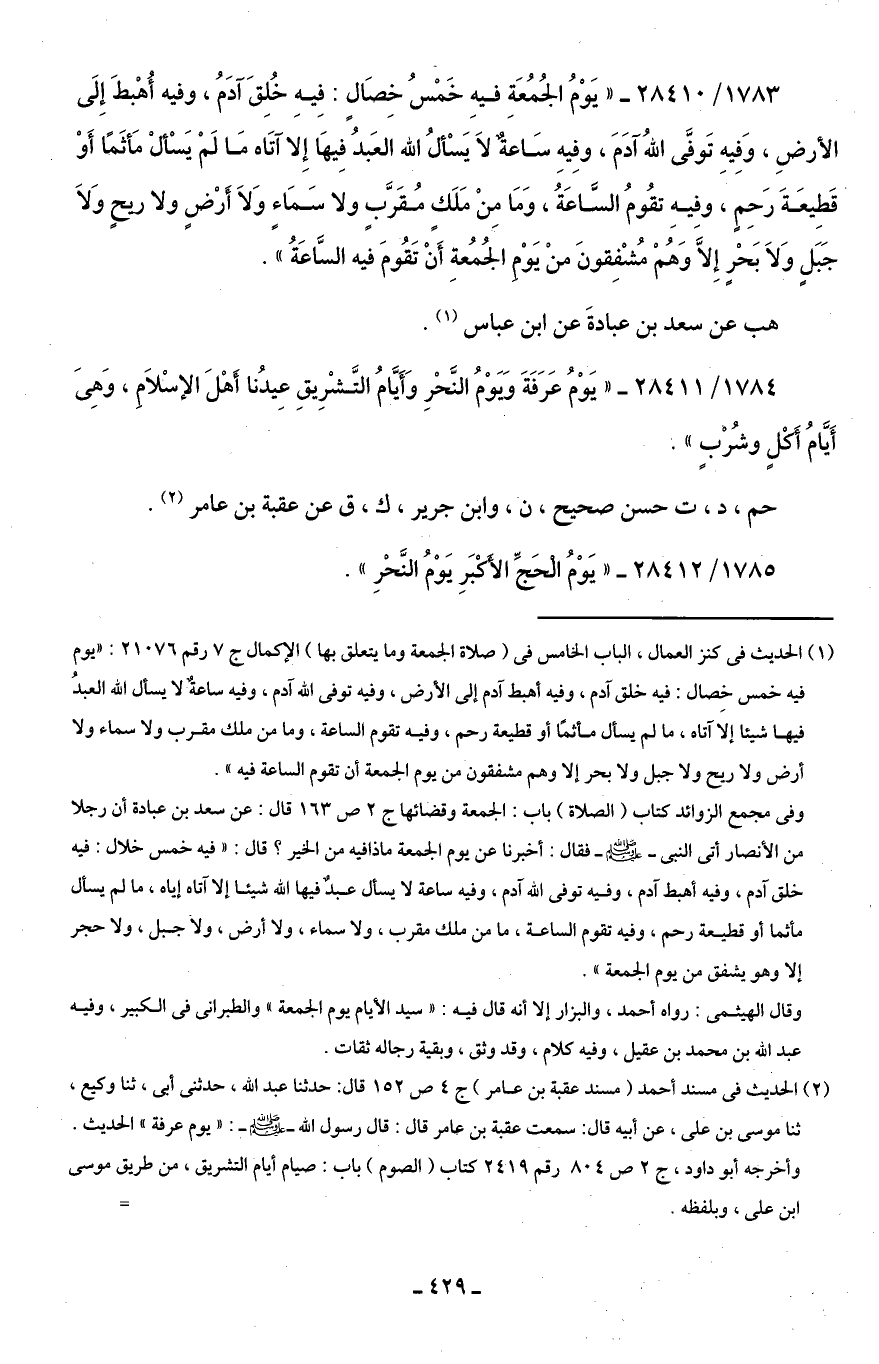 ٢٨٤١٠/١٧٨٣ ـ « يَوْمُ الجُمُعَةِ فِيهِ خَمْسُ خِصَالٍ : فِيهِ خُلِقَ آدَمُ ، وفيه أُهْبِطَ إِلَى
الأرضِ ، وَفِيهِ تَوفَّى اللهُ آدَمَ ، وفيه سَاعةٌ لاَ يَسْألُ الله العَبدُ فِيهَا إلا آتَاه مَا لَمْ يَسْألْ مَأثَمًا أَوْ
قَطِيعَةَ رَحِمٍ ، وفِيهِ تقُومُ السَّاعَةُ ، وَمَا مِنْ مَلَكٍ مُقَرَّبٍ ولا سَمَاءٍ وَلاَ أَرْضٍ ولا ريحٍ وَلاَ
جَبَلٍ وَلاَ بَحْرٍ إِلاَّ وَهُمْ مُشْفِقُونَ مِنْ يَوْمِ الجُمُعة أَنْ تَقُومَ فيه السَّاعَةُ » .
هب عن سعد بن عبادةَ عن ابن عباس (١) .
٢٨٤١١/١٧٨٤ ـ « يَوْمُ عَرَفَةَ وَيَوْمُ النَّحْرِ وَأَيَّامُ التَّشْرِيقِ عِيدُنا أَهْلَ الإِسْلاَمِ ، وَهِىَ
أَيَّامُ أَكْلٍ وشُرْبٍ » .
حم ، د ، ت حسن صحيح ، ن ، وابن جرير ، ك ، ق عن عقبة بن عامر (٢) .
٢٨٤١٢/١٧٨٥ ـ « يَوْمُ الْحَجِّ الأَكْبَرِ يَوْمُ النَّحْرِ » .
(١) الحديث فى كنز العمال ، الباب الخامس فى ( صلاة الجمعة وما يتعلق بها ) الإكمال ج ٧ رقم ٢١٠٧٦ : «يوم
فيه خمس خصال : فيه خلق آدم ، وفيه أهبط آدم إلى الأرض ، وفيه توفى الله آدم ، وفيه ساعةٌ لا يسأل الله العبدُ
فيها شيئا إلا آتاه ، ما لم يسأل مأثمًا أو قطيعة رحم ، وفيه تقوم الساعة ، وما من ملك مقرب ولا سماء ولا
أرض ولا ريح ولا جبل ولا بحر إلا وهم مشفقون من يوم الجمعة أن تقوم الساعة فيه » .
وفى مجمع الزوائد كتاب ( الصلاة ) باب : الجمعة وقضائها ج ٢ ص ١٦٣ قال : عن سعد بن عبادة أن رجلا
من الأنصار أتى النبى ـ ﷺ ـ فقال : أخبرنا عن يوم الجمعة ماذافيه من الخير ؟ قال : « فيه خمس خلال : فيه
خلق آدم ، وفيه أهبط آدم ، وفيه توفى الله آدم ، وفيه ساعة لا يسأل عبدٌ فيها الله شيئا إلا آتاه إياه ، ما لم يسأل
مأثما أو قطيعة رحم ، وفيه تقوم الساعة ، ما من ملك مقرب ، ولا سماء ، ولا أرض ، ولا جبل ، ولا حجر
إلا وهو يشفق من يوم الجمعة » .
وقال الهيثمى : رواه أحمد ، والبزار إلا أنه قال فيه : « سيد الأيام يوم الجمعة » والطبرانى فى الكبير ، وفيه
عبد الله بن محمد بن عقيل ، وفيه كلام ، وقد وثق ، وبقية رجاله ثقات .
(٢) الحديث فى مسند أحمد ( مسند عقبة بن عامر ) ج ٤ ص ١٥٢ قال: حدثنا عبد الله ، حدثنى أبى ، ثنا وكيع ،
ثنا موسى بن على ، عن أبيه قال: سمعت عقبة بن عامر قال : قال رسول الله ـ ﷺ ـ : « يوم عرفة » الحديث .
وأخرجه أبو داود ، ج ٢ ص ٨٠٤ رقم ٢٤١٩ كتاب ( الصوم ) باب : صيام أيام التشريق ، من طريق موسى
ابن على ، وبلفظه . =
ـ ٤٢٩ ـ